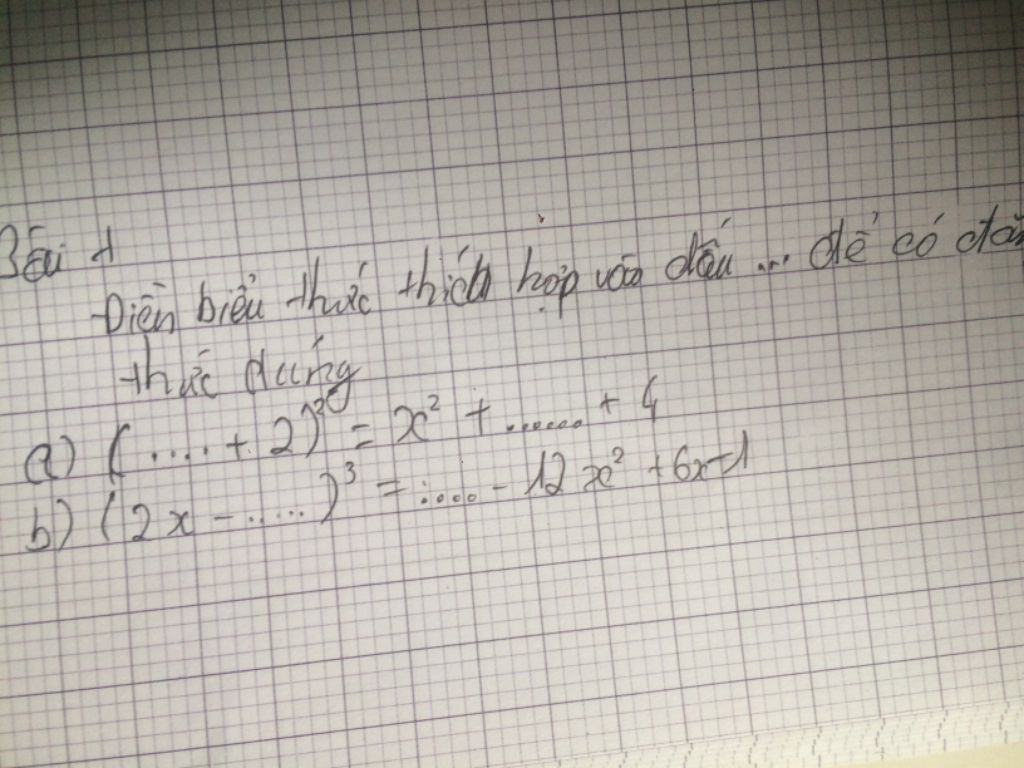 Bài 1
Điền biểu thức thích hợp vào dấu ... để có đẳn
thức đúng
a) (.... + 2)² = x² + ...... + 4
b) (2x - .....)³ = ..... - 12x² + 6x - 1